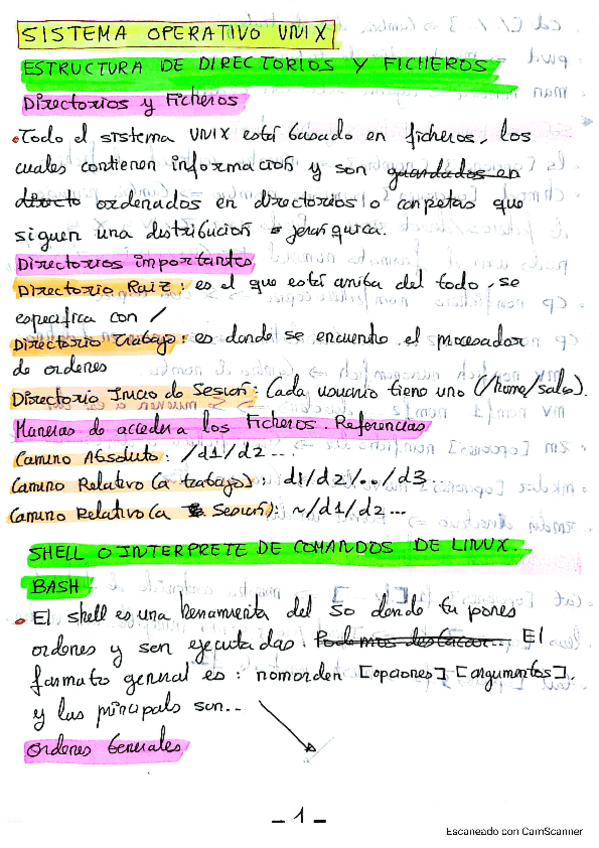 SISTEMA OPERATIVO UNIX
ESTRUCTURA DE DIRECTORIOS Y FICHEROS
Directorios y Ficheros
• Todo el sistema UNIX está basado en ficheros, los
cuales contienen información y son guardados en
directo ordenados en directorios o carpetas que
siguen una distribución jerárquica.
Directorios importantes
Directorio Raiz: es el que está arriba del todo, se
especifica con /
Directorio Trabajo: es donde se encuentra el procesador
de ordenes
Directorio Inicio de Sesión: Cada usuario tiene uno (/home/salas).
Maneras de acceder a los Ficheros. Referencias
Camino Absoluto: /d1/d2...
Camino Relativo (a trabajo): d1/d2/../d3...
Camino Relativo (a Sesión): ~/d1/d2...
SHELL O INTERPRETE DE COMANDOS DE LINUX.
BASH
• El shell es una herramienta del SO donde tu pones
ordenes y son ejecutadas. Podemos destacar... El
formato general es: nomorden [opciones] [argumentos],
y las principals son...
Ordenes Generales
- 1 -
Escaneado con CamScanner